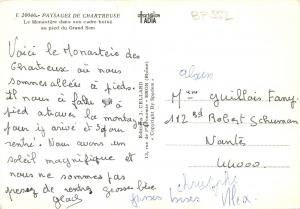 I. 20046. - PAYSAGES DE CHARTREUSE
Le Monastère dans son cadre boisé
au pied du Grand Som
BF 552
Voici le Monastère des
Chartreux où nous
sommes allées à pieds.
Il nous a fallu
à pied à travers la montagne
pour y arrivé et
rentré. Nous avons un
soleil magnifique et
nous ne sommes pas
pressez de rentrer grosse bise
alain
Mme Guillois Fany
112 Bd Robert Schuman
Nantes
44000
christophe
grosses bises